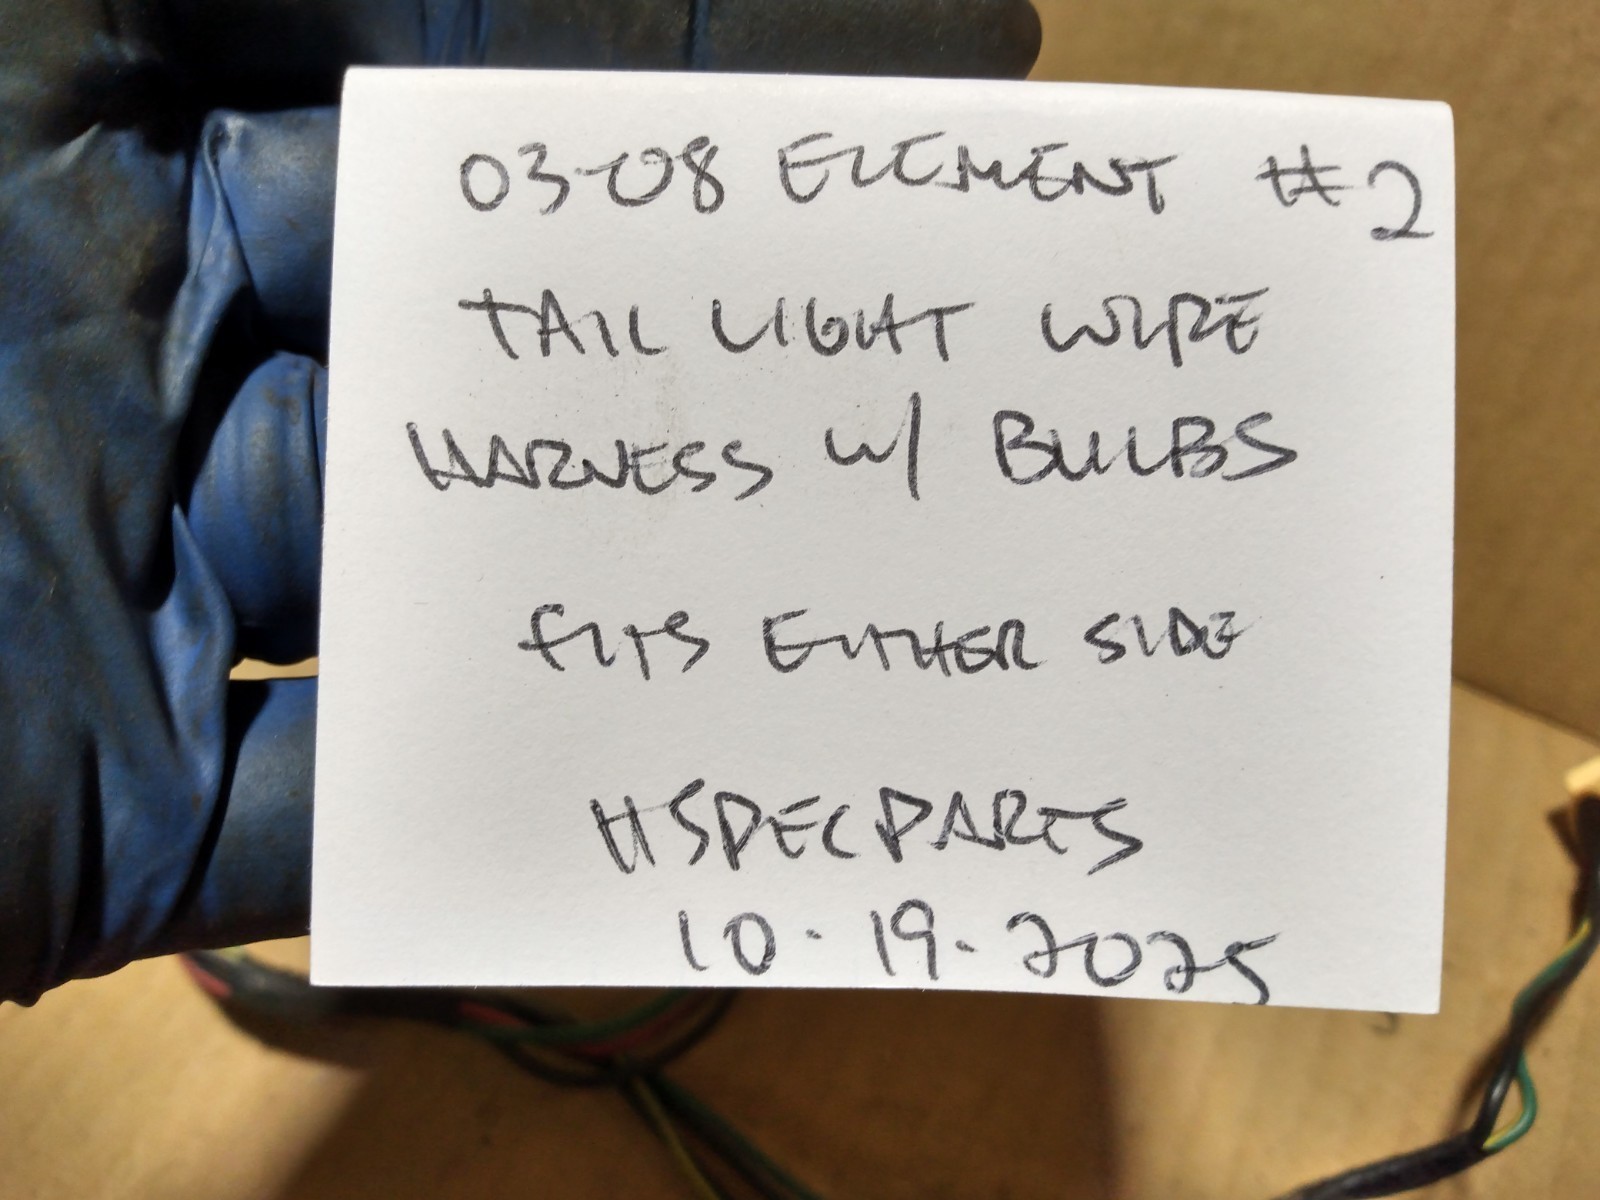 03-08 ELEMENT #2
TAIL LIGHT WIRE
HARNESS W/ BULBS
FITS EITHER SIDE
HSPECPARTS
10-19-2025